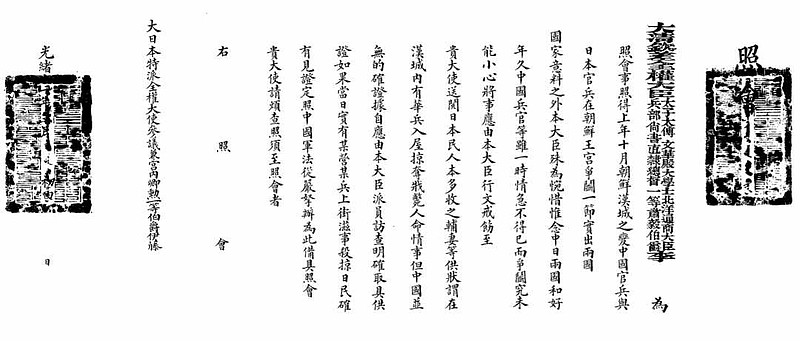 照會
大清欽差全權大臣太子太傅文華殿大學士北洋通商大臣兵部尚書直隸總督一等肅毅伯爵李 為
照會事照得上年十月朝鮮漢城之變中國官兵與
日本官兵在朝鮮王宮爭鬬一節實出兩國
國家意料之外本大臣殊為惋惜惟念中日兩國和好
年久中國兵官等雖一時情急不得已而爭鬬究未
能小心將事應由本大臣行文戒飭至
貴大使送閱日本民人本多收之輔妻等供狀謂在
漢城內有華兵入屋掠奪戕斃人命情事但中國並
無的確證據自應由本大臣派員訪查明確取具供
證如果當日實有某營某兵上街滋事殺掠日民確
有見證定照中國軍法從嚴拏辦為此備具照會
貴大使請煩查照須至照會者
右 照 會
大日本特派全權大使參議兼宮內卿勳一等伯爵伊藤
光緒 日